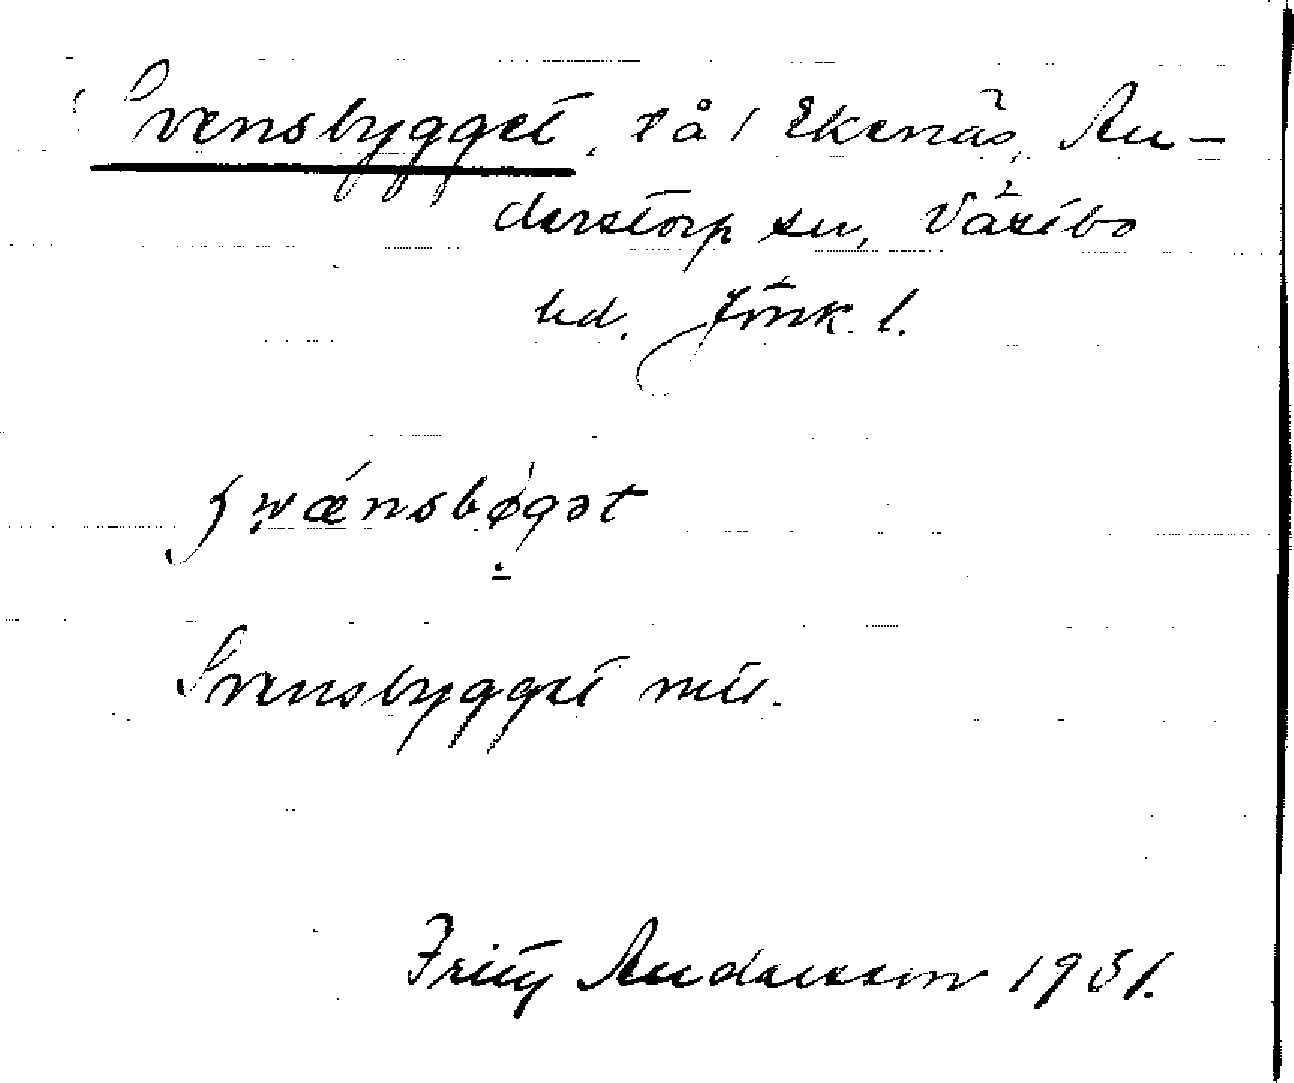 Svensbygget, på 1 Ekenäs, An-
derstorp sn, Västbo
hd. Jönk. l.
swǽnsbøgət
Svensbygget mtl.
Fritz Andersson 1931.